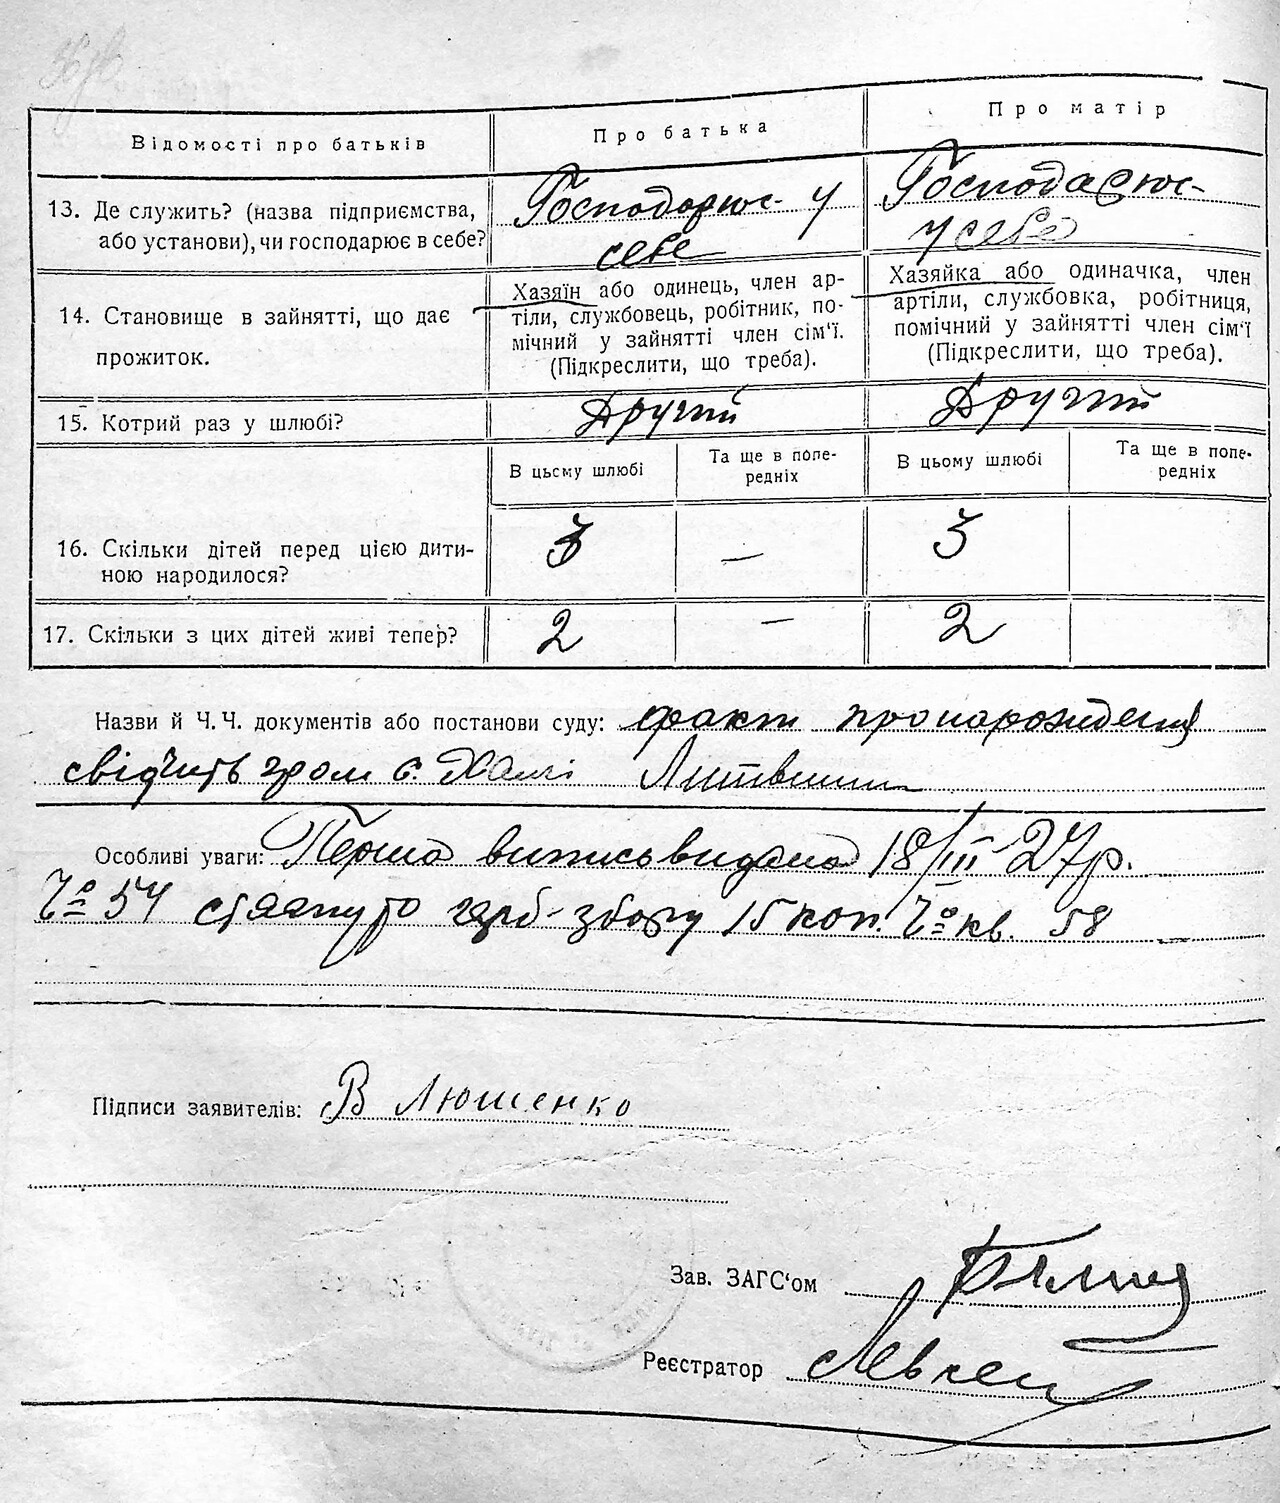 Відомості про батьків
Про батька
Про матір
13. Де служить? (назва підприємства,
або установи), чи господарює в себе?
Господорює у
себе
Господарює
у себе
14. Становище в зайнятті, що дає
прожиток.
Хазяїн або одинець, член ар-
тіли, службовець, робітник, по-
мічний у зайнятті член сім'ї.
(Підкреслити, що треба).
Хазяйка або одиначка, член
артіли, службовка, робітниця,
помічний у зайнятті член сім'ї
(Підкреслити, що треба).
15. Котрий раз у шлюбі?
Другий
Другий
В цьому шлюбі
Та ще в попе-
редніх
В цьому шлюбі
Та ще в попе-
редніх
16. Скільки дітей перед цією дити-
ною народилося?
3 —
3
17. Скільки з цих дітей живі тепер?
2 —
2
Назви й Ч. Ч. документів або постанови суду: факт про народження
свідчить гром с.
Особливі уваги: Перша випись видана 18/III 27р.
Чо 54 стягнуто герб-збору 15 коп. Чо кв. 58
Підписи заявителів: В Люшенко
Зав. ЗАГС'ом
Реєстратор